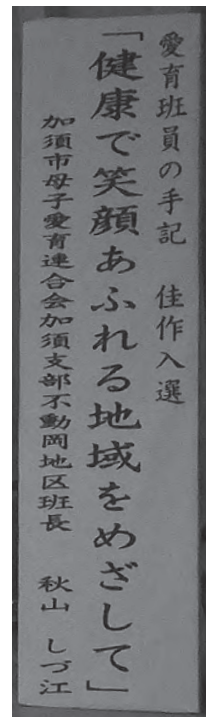 愛育班員の手記　佳作入選
「健康で笑顔あふれる地域をめざして」
加須市母子愛育連合会加須支部不動岡地区班長　秋山　しづ江